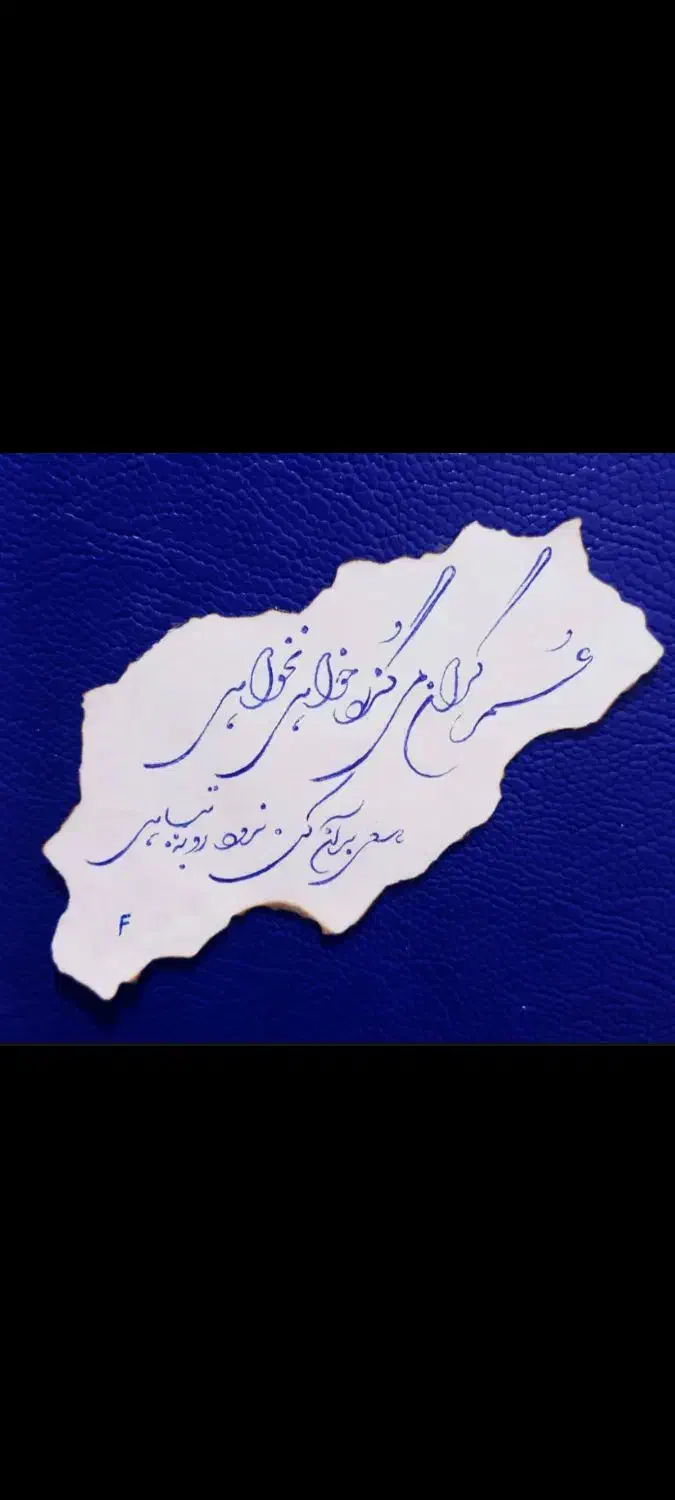 عُمر گران می گُذرد خواهی نخواهی
سعی برآن کن نرود رو به تباهی
F